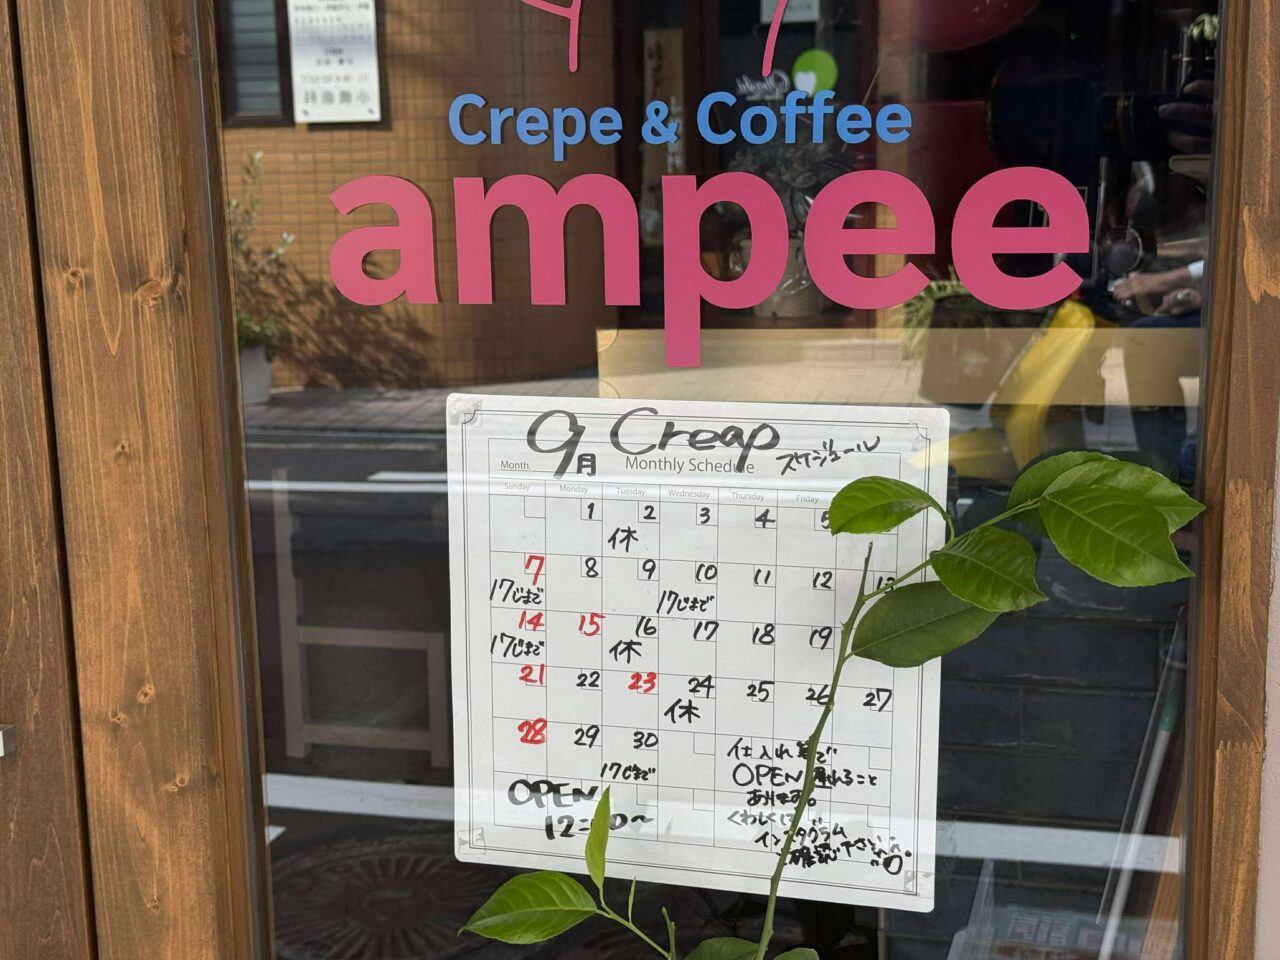 Crepe & Coffee
ampee
9月 Creap スケジュール
Month. Monthly Schedule
Sunday Monday Tuesday Wednesday Thursday Friday
1 2 3 4 5
休
7 8 9 10 11 12 13
17じまで 17じまで
14 15 16 17 18 19
17じまで 休
21 22 23 24 25 26 27
休
28 29 30
17じまで
仕入れ等で
OPEN 遅れること
あります。
OPEN
くわしくは
インスタグラム
確認下さい